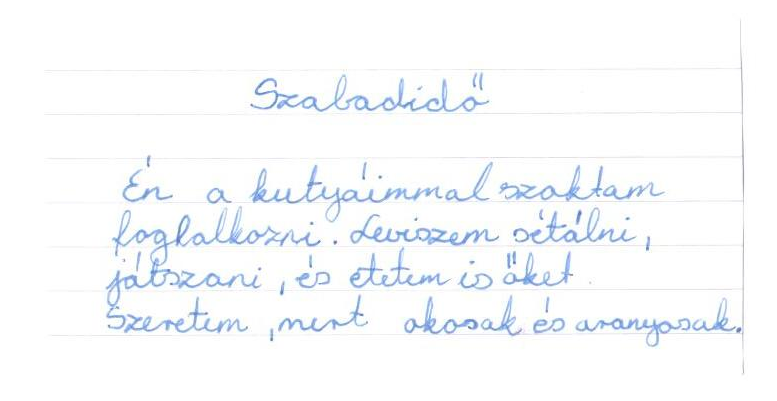 Szabadidő
Én a kutyáimmal szoktam
foglalkozni. Leviszem sétálni,
játszani, és etetem is őket.
Szeretem, mert okosak és aranyosak.